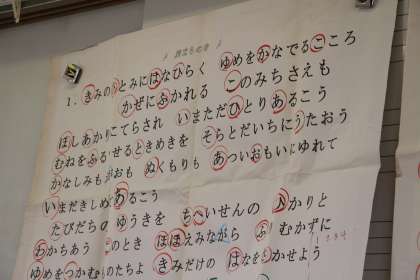 1. きみのひとみにはなびらく ゆめをかなでるこころ
かぜにふかれる このみちさえも
ほしあかりてらされ いまただひとりあるこう
むねをふるせるときめきを そらとだいちにうたおう
かなしみも ぬくもりも あついおもいにゆれて
いまだきしめ あるこう
たびだちの ゆうきを ちへいせんの ひかりと
わかちあう このとき ほほえみながら ふりむかずに
ゆめをつかむものたちよ きみだけの はなをさかせよう
1 2 3 4